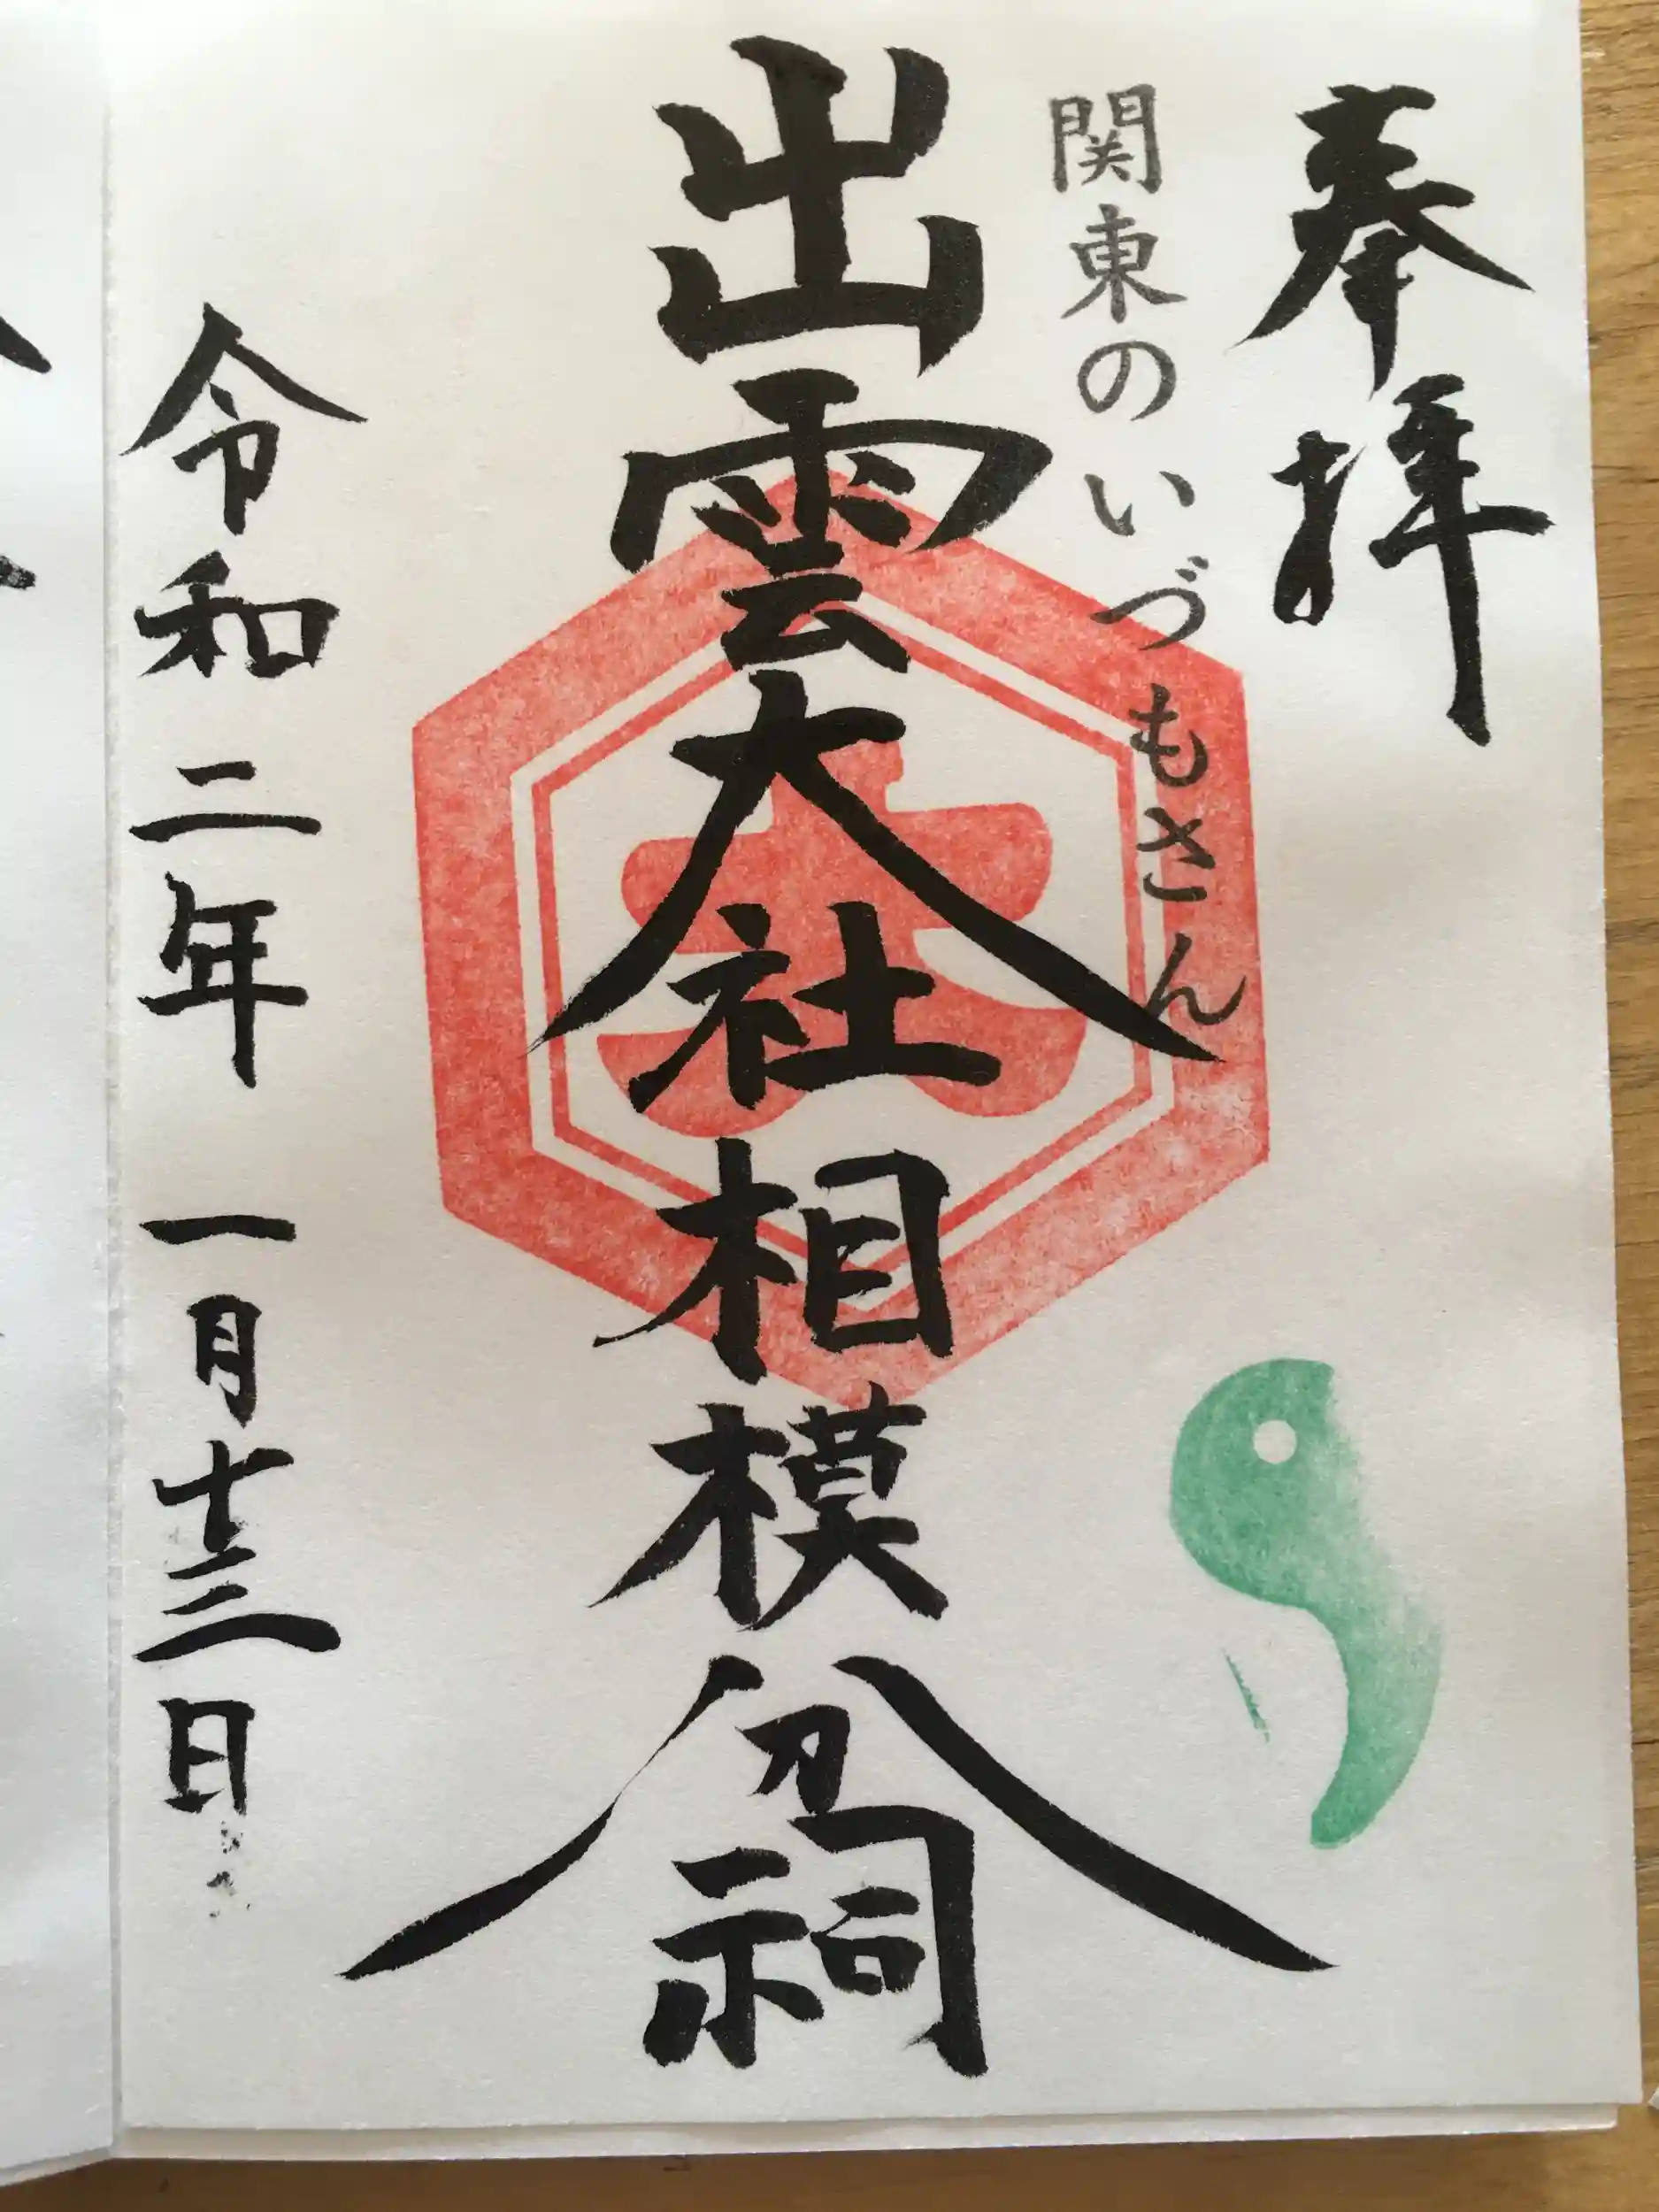 奉拝
関東のいづもさん
出雲大社相模分祠
令和二年一月十三日
大